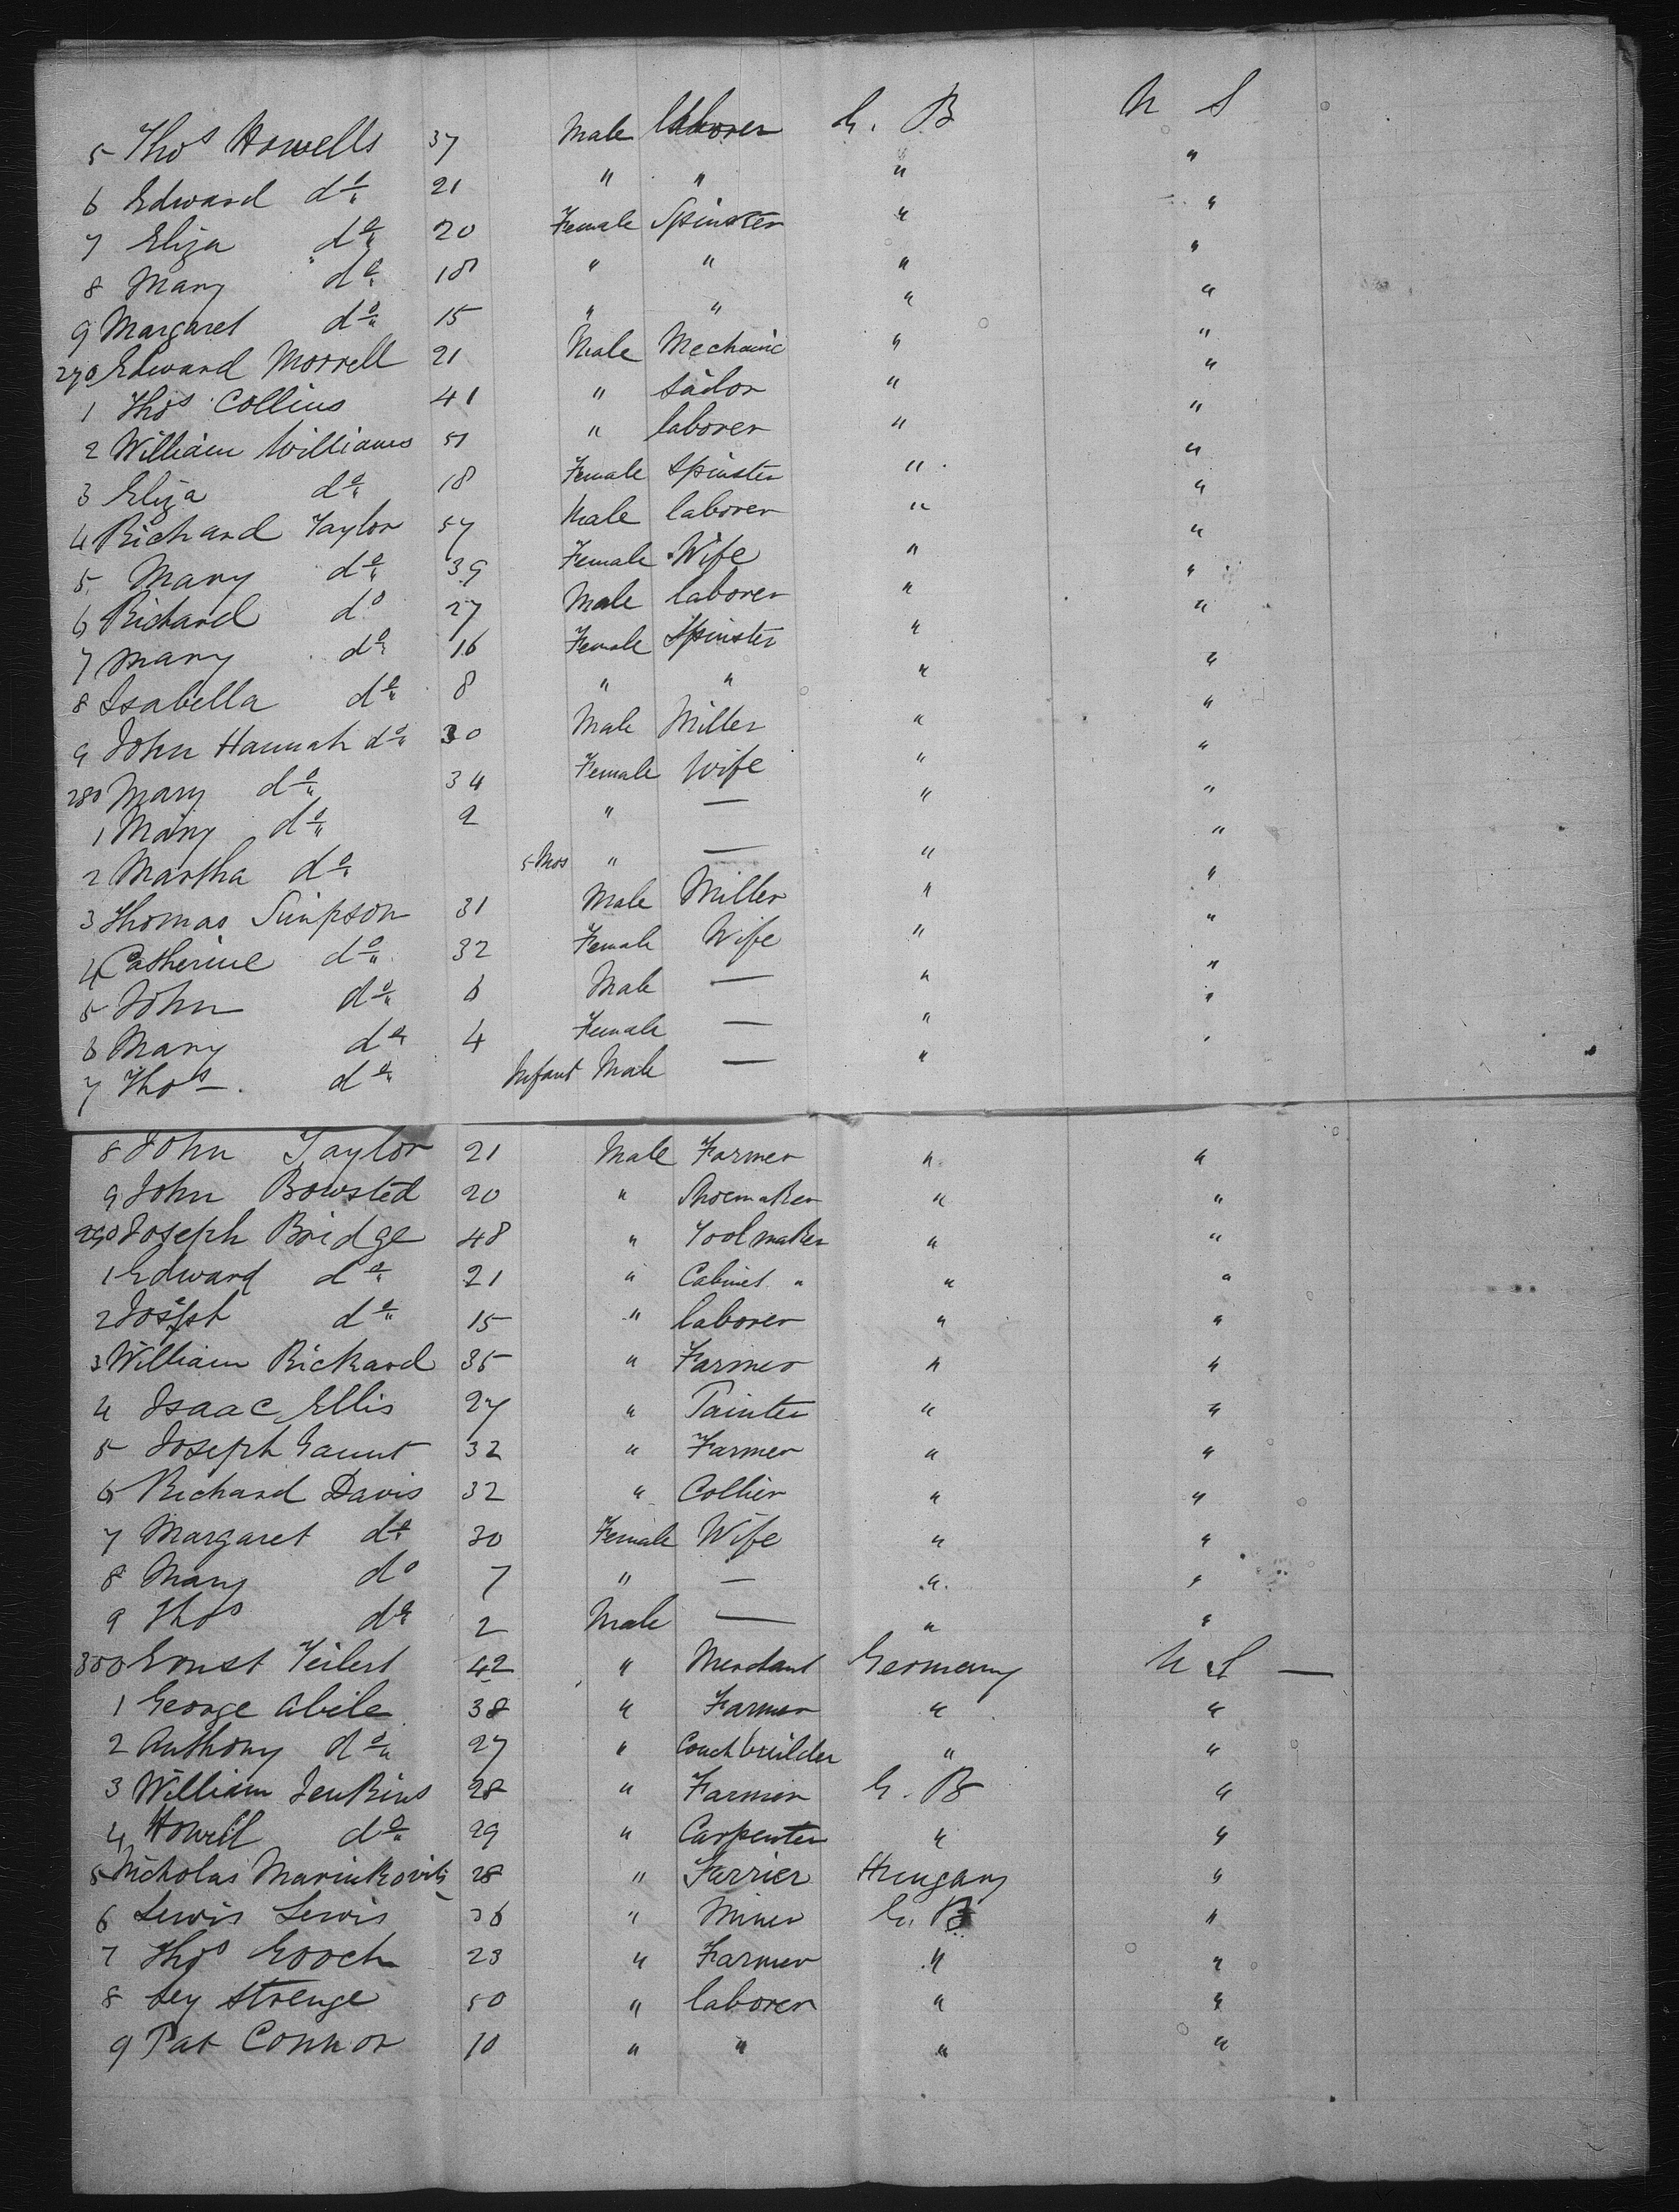 5 Thos Howells 37 Male laborer G. B U S
6 Edward do 21 " " " "
7 Eliza do 20 Female Spinster " "
8 Mary do 18 " " " "
9 Margaret do 15 " " " "
270 Edward Morrell 21 Male Mechanic " "
1 Thos Collins 41 " tailor " "
2 William Williams 51 " laborer " "
3 Eliza do 18 Female Spinster " "
4 Richard Taylor 57 Male laborer " "
5 Mary do 39 Female Wife " "
6 Richard do 27 Male laborer " "
7 Mary do 16 Female Spinster " "
8 Isabella do 8 " " " "
9 John Hannah do 30 Male Miller " "
280 Mary do 34 Female Wife " "
1 Mary do 2 " — " "
2 Martha do 5 Mos " — " "
3 Thomas Simpson 31 Male Miller " "
4 Catherine do 32 Female Wife " "
5 John do 6 Male — " "
6 Mary do 4 Female — " "
7 Thos do Infant Male — " "
8 John Taylor 21 Male Farmer " "
9 John Bowsted 20 " Shoemaker " "
290 Joseph Bridge 48 " Toolmaker " "
1 Edward do 21 " Cabinet " " "
2 Joseph do 15 " laborer " "
3 William Rickard 35 " Farmer " "
4 Isaac Ellis 27 " Painter " "
5 Joseph Gaunt 32 " Farmer " "
6 Richard Davis 32 " Collier " "
7 Margaret do 30 Female Wife " "
8 Mary do 7 " — " "
9 Thos do 2 Male — " "
300 Ernst 42 " Merchant Germany U S —
1 George Abile 38 " Farmer " "
2 Anthony do 27 " Coachbuilder " "
3 William Jenkins 28 " Farmer G. B "
4 Howell do 29 " Carpenter " "
5 Nicholas 28 " Farrier Hungary "
6 Lewis Lewis 36 " Miner G. B "
7 Thos Gooch 23 " Farmer " "
8 Strenge 50 " laborer " "
9 Pat Connor 10 " " " "